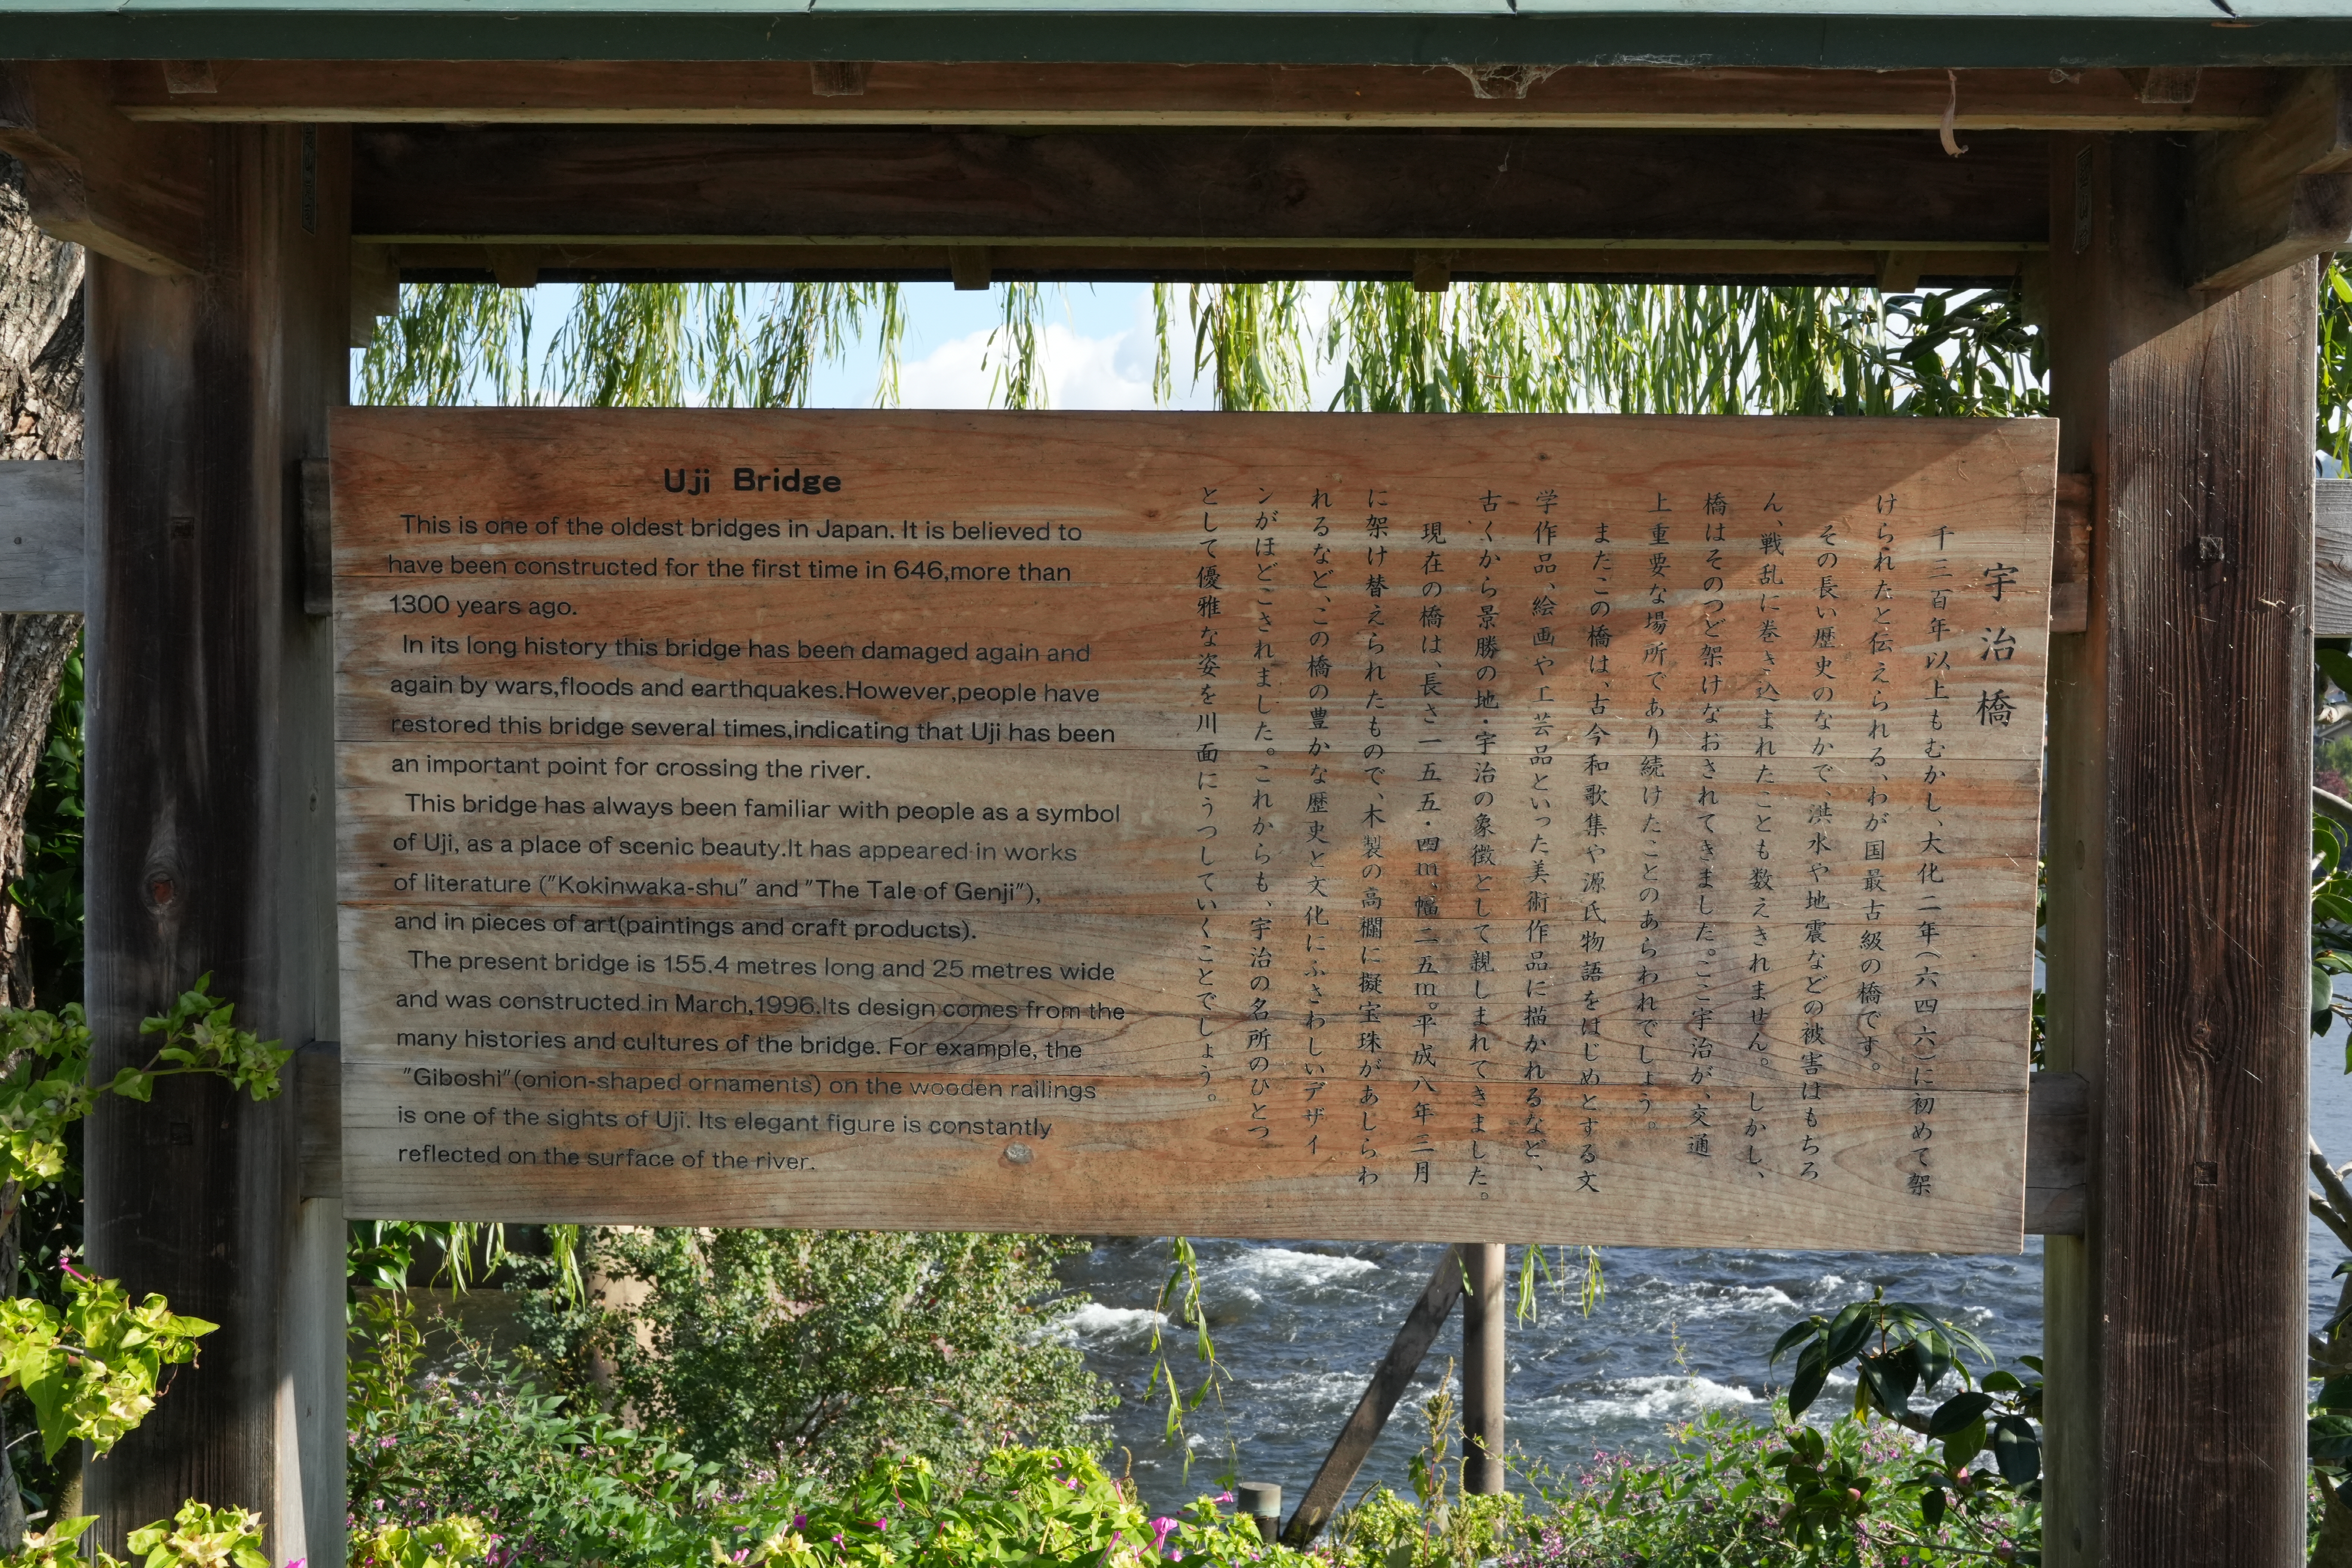 Uji Bridge
This is one of the oldest bridges in Japan. It is believed to
have been constructed for the first time in 646,more than
1300 years ago.
In its long history this bridge has been damaged again and
again by wars,floods and earthquakes.However,people have
restored this bridge several times,indicating that Uji has been
an important point for crossing the river.
This bridge has always been familiar with people as a symbol
of Uji, as a place of scenic beauty.It has appeared in works
of literature ("Kokinwaka-shu" and "The Tale of Genji"),
and in pieces of art(paintings and craft products).
The present bridge is 155.4 metres long and 25 metres wide
and was constructed in March,1996.Its design comes from the
many histories and cultures of the bridge. For example, the
"Giboshi"(onion-shaped ornaments) on the wooden railings
is one of the sights of Uji. Its elegant figure is constantly
reflected on the surface of the river.
宇治橋
千三百年以上もむかし、大化二年(六四六)に初めて架
けられたと伝えられる、わが国最古級の橋です。
その長い歴史のなかで、洪水や地震などの被害はもちろ
ん、戦乱に巻き込まれたことも数えきれません。しかし、
橋はそのつど架けなおされてきました。ここ宇治が、交通
上重要な場所であり続けたことのあらわれでしょう。
またこの橋は、古今和歌集や源氏物語をはじめとする文
学作品、絵画や工芸品といった美術作品に描かれるなど、
古くから景勝の地・宇治の象徴として親しまれてきました。
現在の橋は、長さ一五五・四m、幅二五m。平成八年三月
に架け替えられたもので、木製の高欄に擬宝珠があしらわ
れるなど、この橋の豊かな歴史と文化にふさわしいデザイ
ンがほどこされました。これからも、宇治の名所のひとつ
として優雅な姿を川面にうつしていくことでしょう。